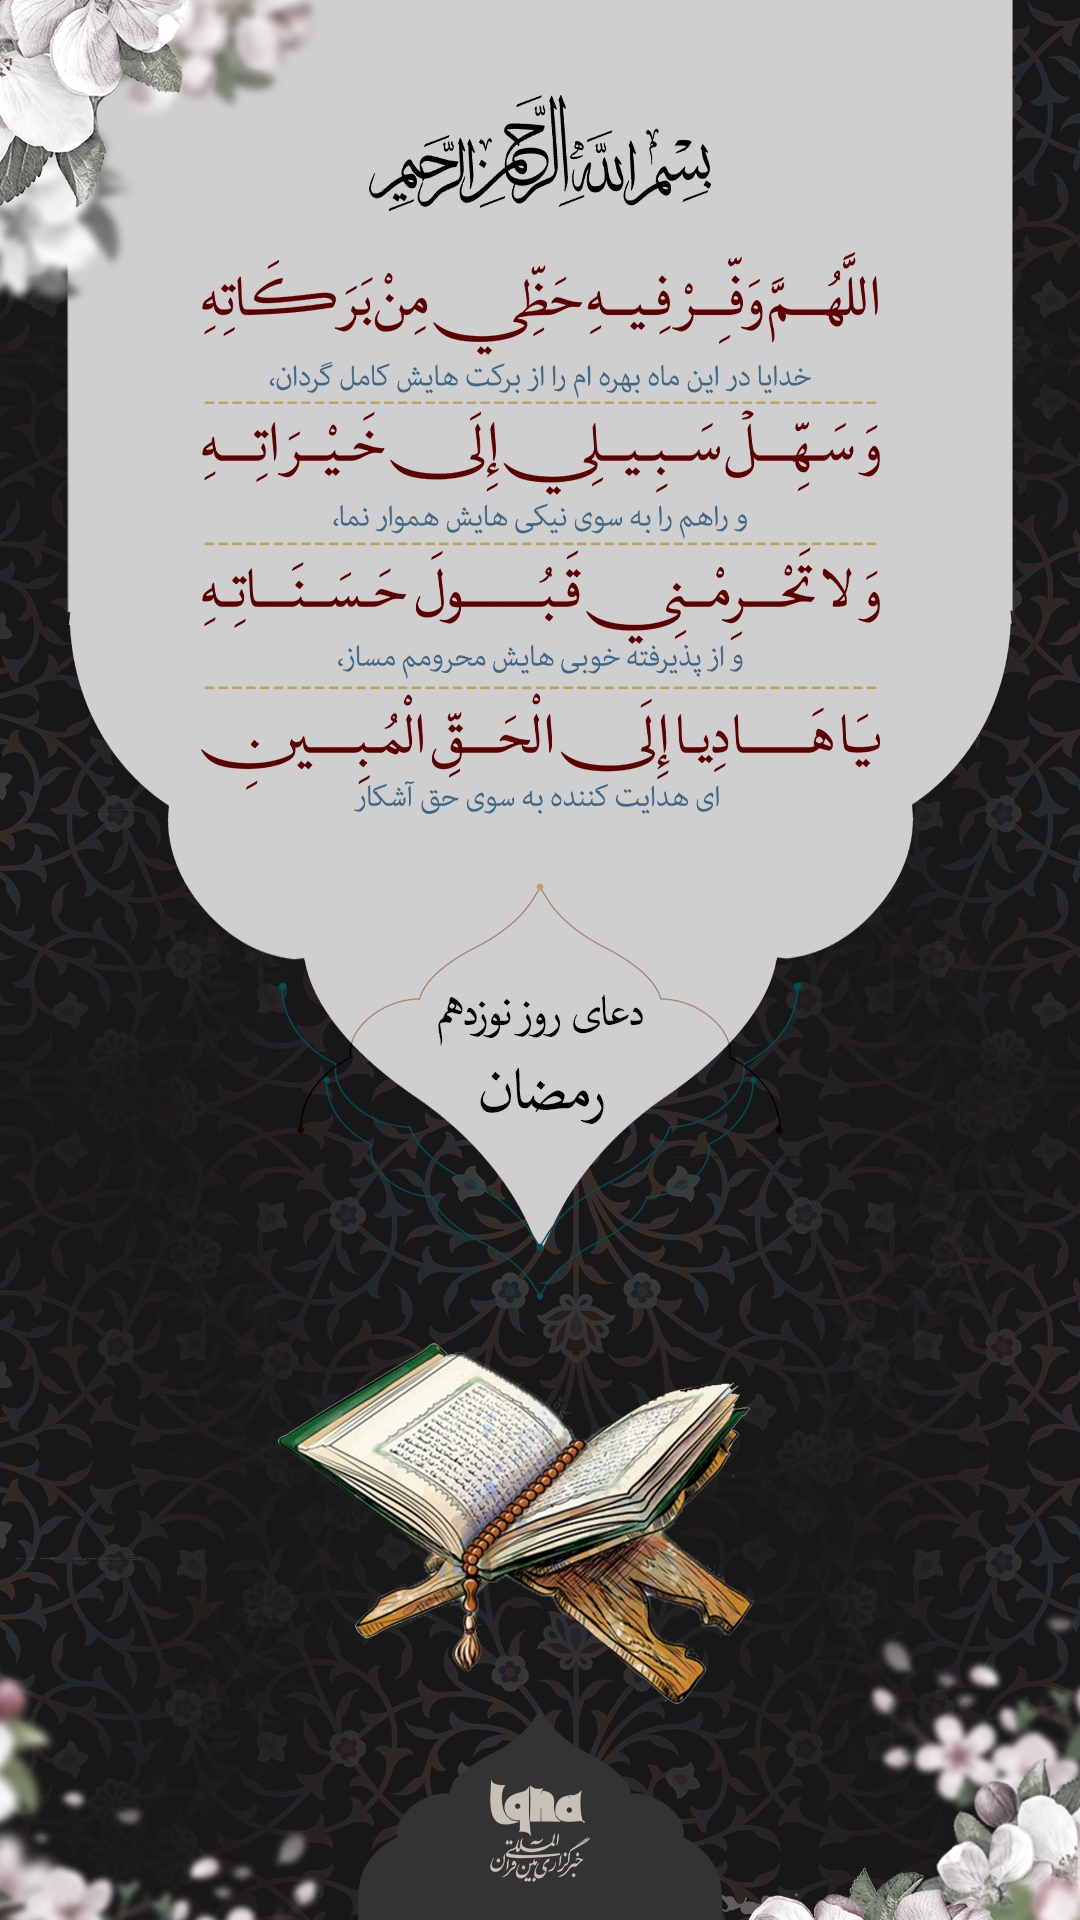 بِسْمِ اللَّهِ الرَّحْمَنِ الرَّحِيمِ
اللَّهُمَّ وَفِّرْ فِيهِ حَظِّي مِنْ بَرَكَاتِهِ
خدایا در این ماه بهره ام را از برکت هایش کامل گردان،
وَ سَهِّلْ سَبِيلِي إِلَى خَيْرَاتِهِ
و راهم را به سوی نیکی هایش هموار نما،
وَ لا تَحْرِمْنِي قَبُولَ حَسَنَاتِهِ
و از پذیرفته خوبی هایش محرومم مساز،
يَا هَادِيا إِلَى الْحَقِّ الْمُبِينِ
ای هدایت کننده به سوی حق آشکار
دعای روز نوزدهم
رمضان
Iqna
خبرگزاری بین المللی قرآن